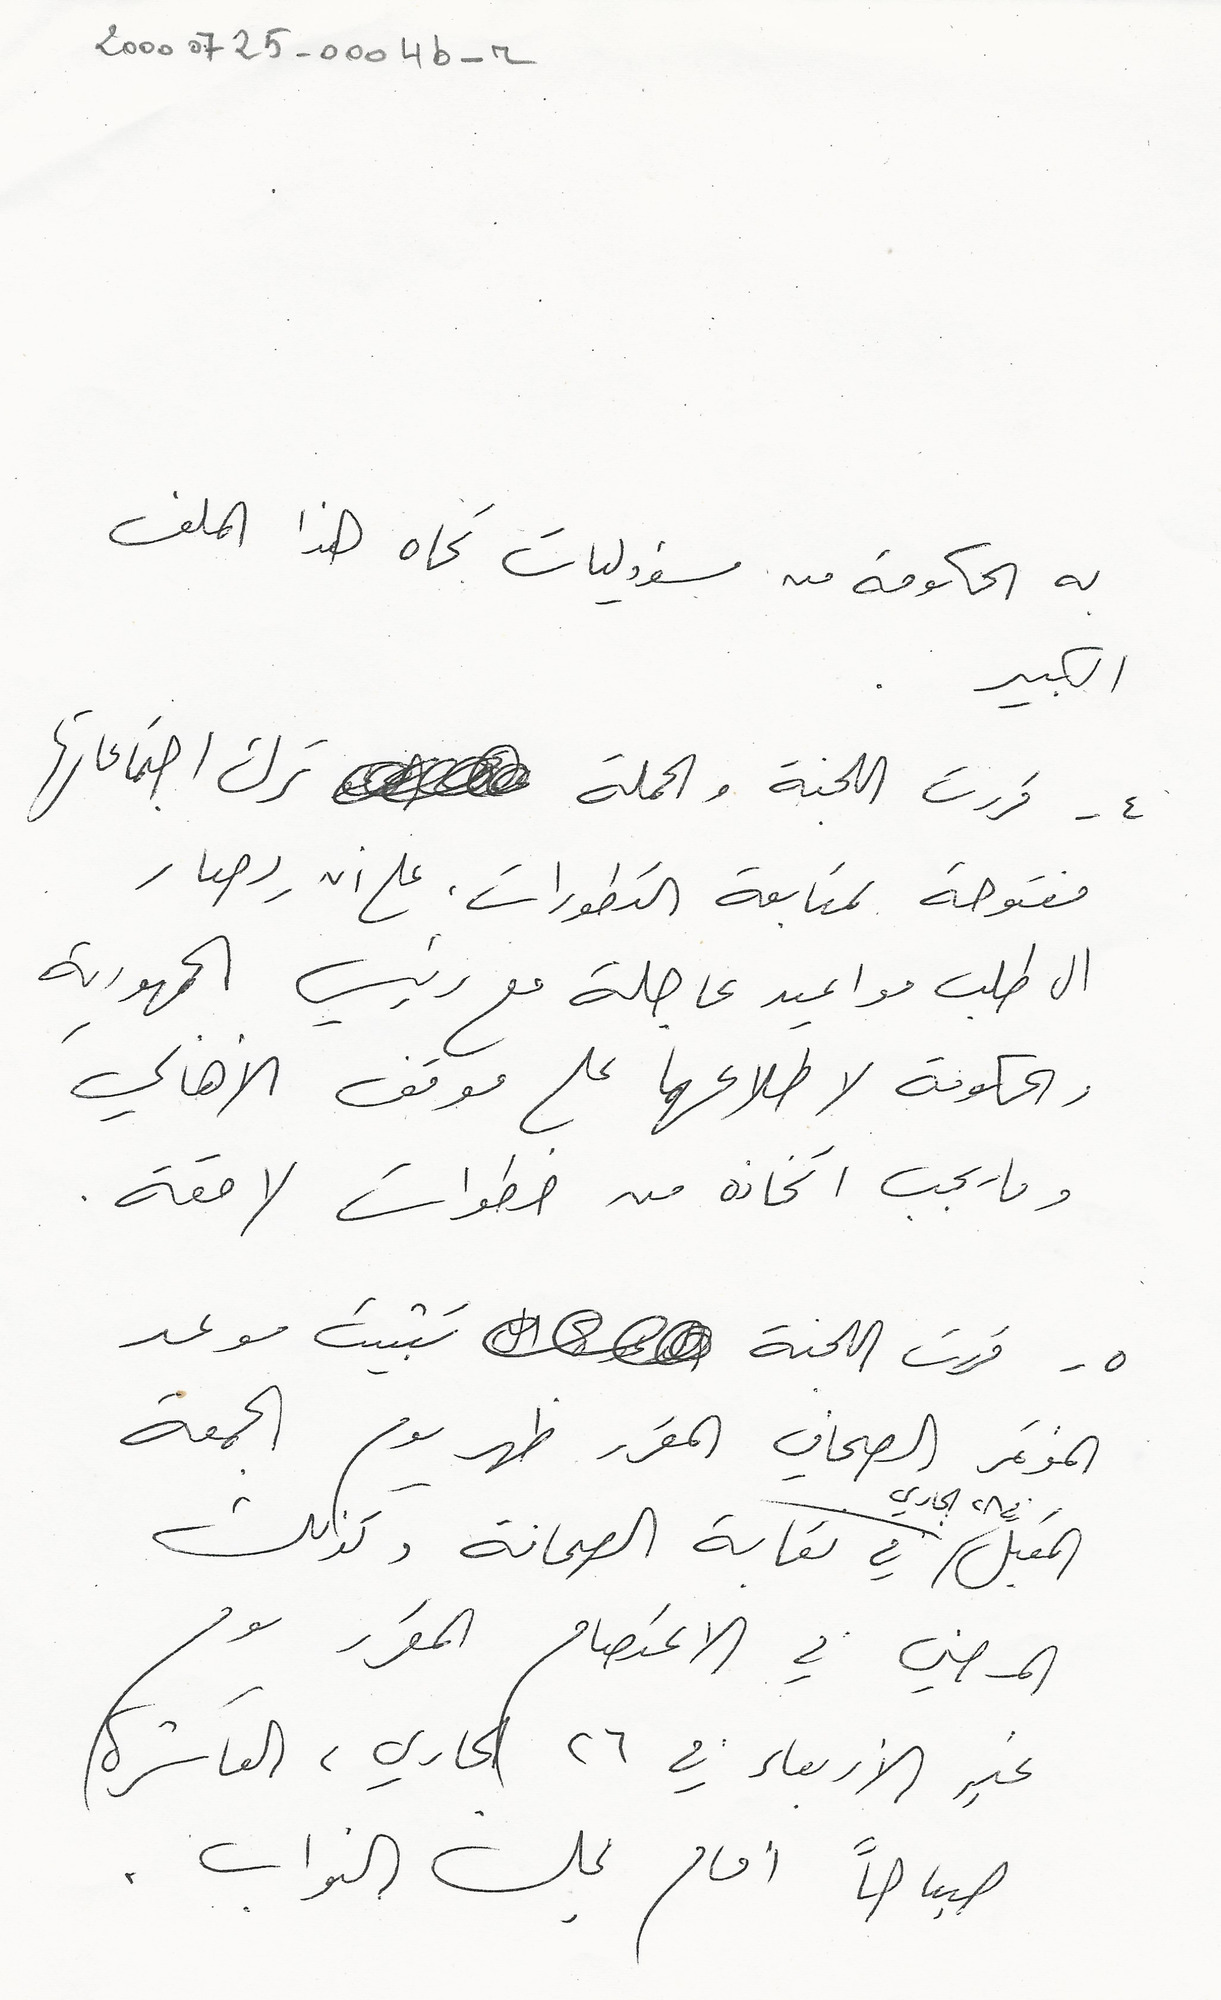 20000725-0004b-r
به الحكومة من مسؤوليات تجاه هذا الملف
الكبير .
٤ - قررت اللجنة والحملة ترك اجتماعاتها
مفتوحة لمتابعة التطورات، على ان يصار
الى طلب مواعيد عاجلة مع رئيسي الجمهورية
والحكومة لاطلاعهما على موقف الأهالي
وما يجب اتخاذه من خطوات لاحقة .
٥ - قررت اللجنة تثبيت موعد
المؤتمر الصحافي المقرر ظهر يوم الجمعة
في ٢٨ الجاري
المقبل في نقابة الصحافة وكذلك
المضي في الاعتصام المقرر يوم
غدٍ الأربعاء في ٢٦ الجاري، العاشرة
صباحاً أمام مجلس النواب .